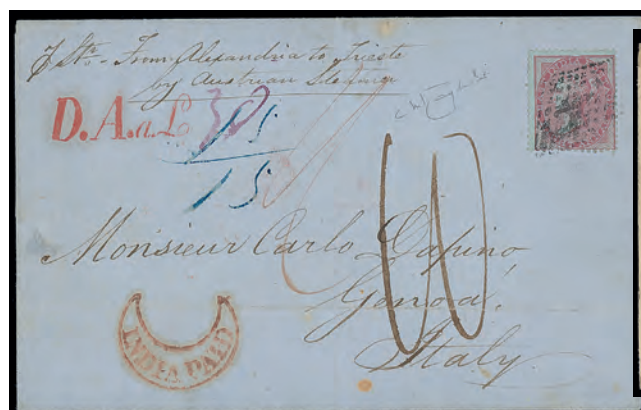 p Str. From Alexandria to Trieste
by Austrian Steamer
D.A.a.L 30
15
15
Monsieur Carlo Dapino,
Genoa.
Italy
INDIA PAID